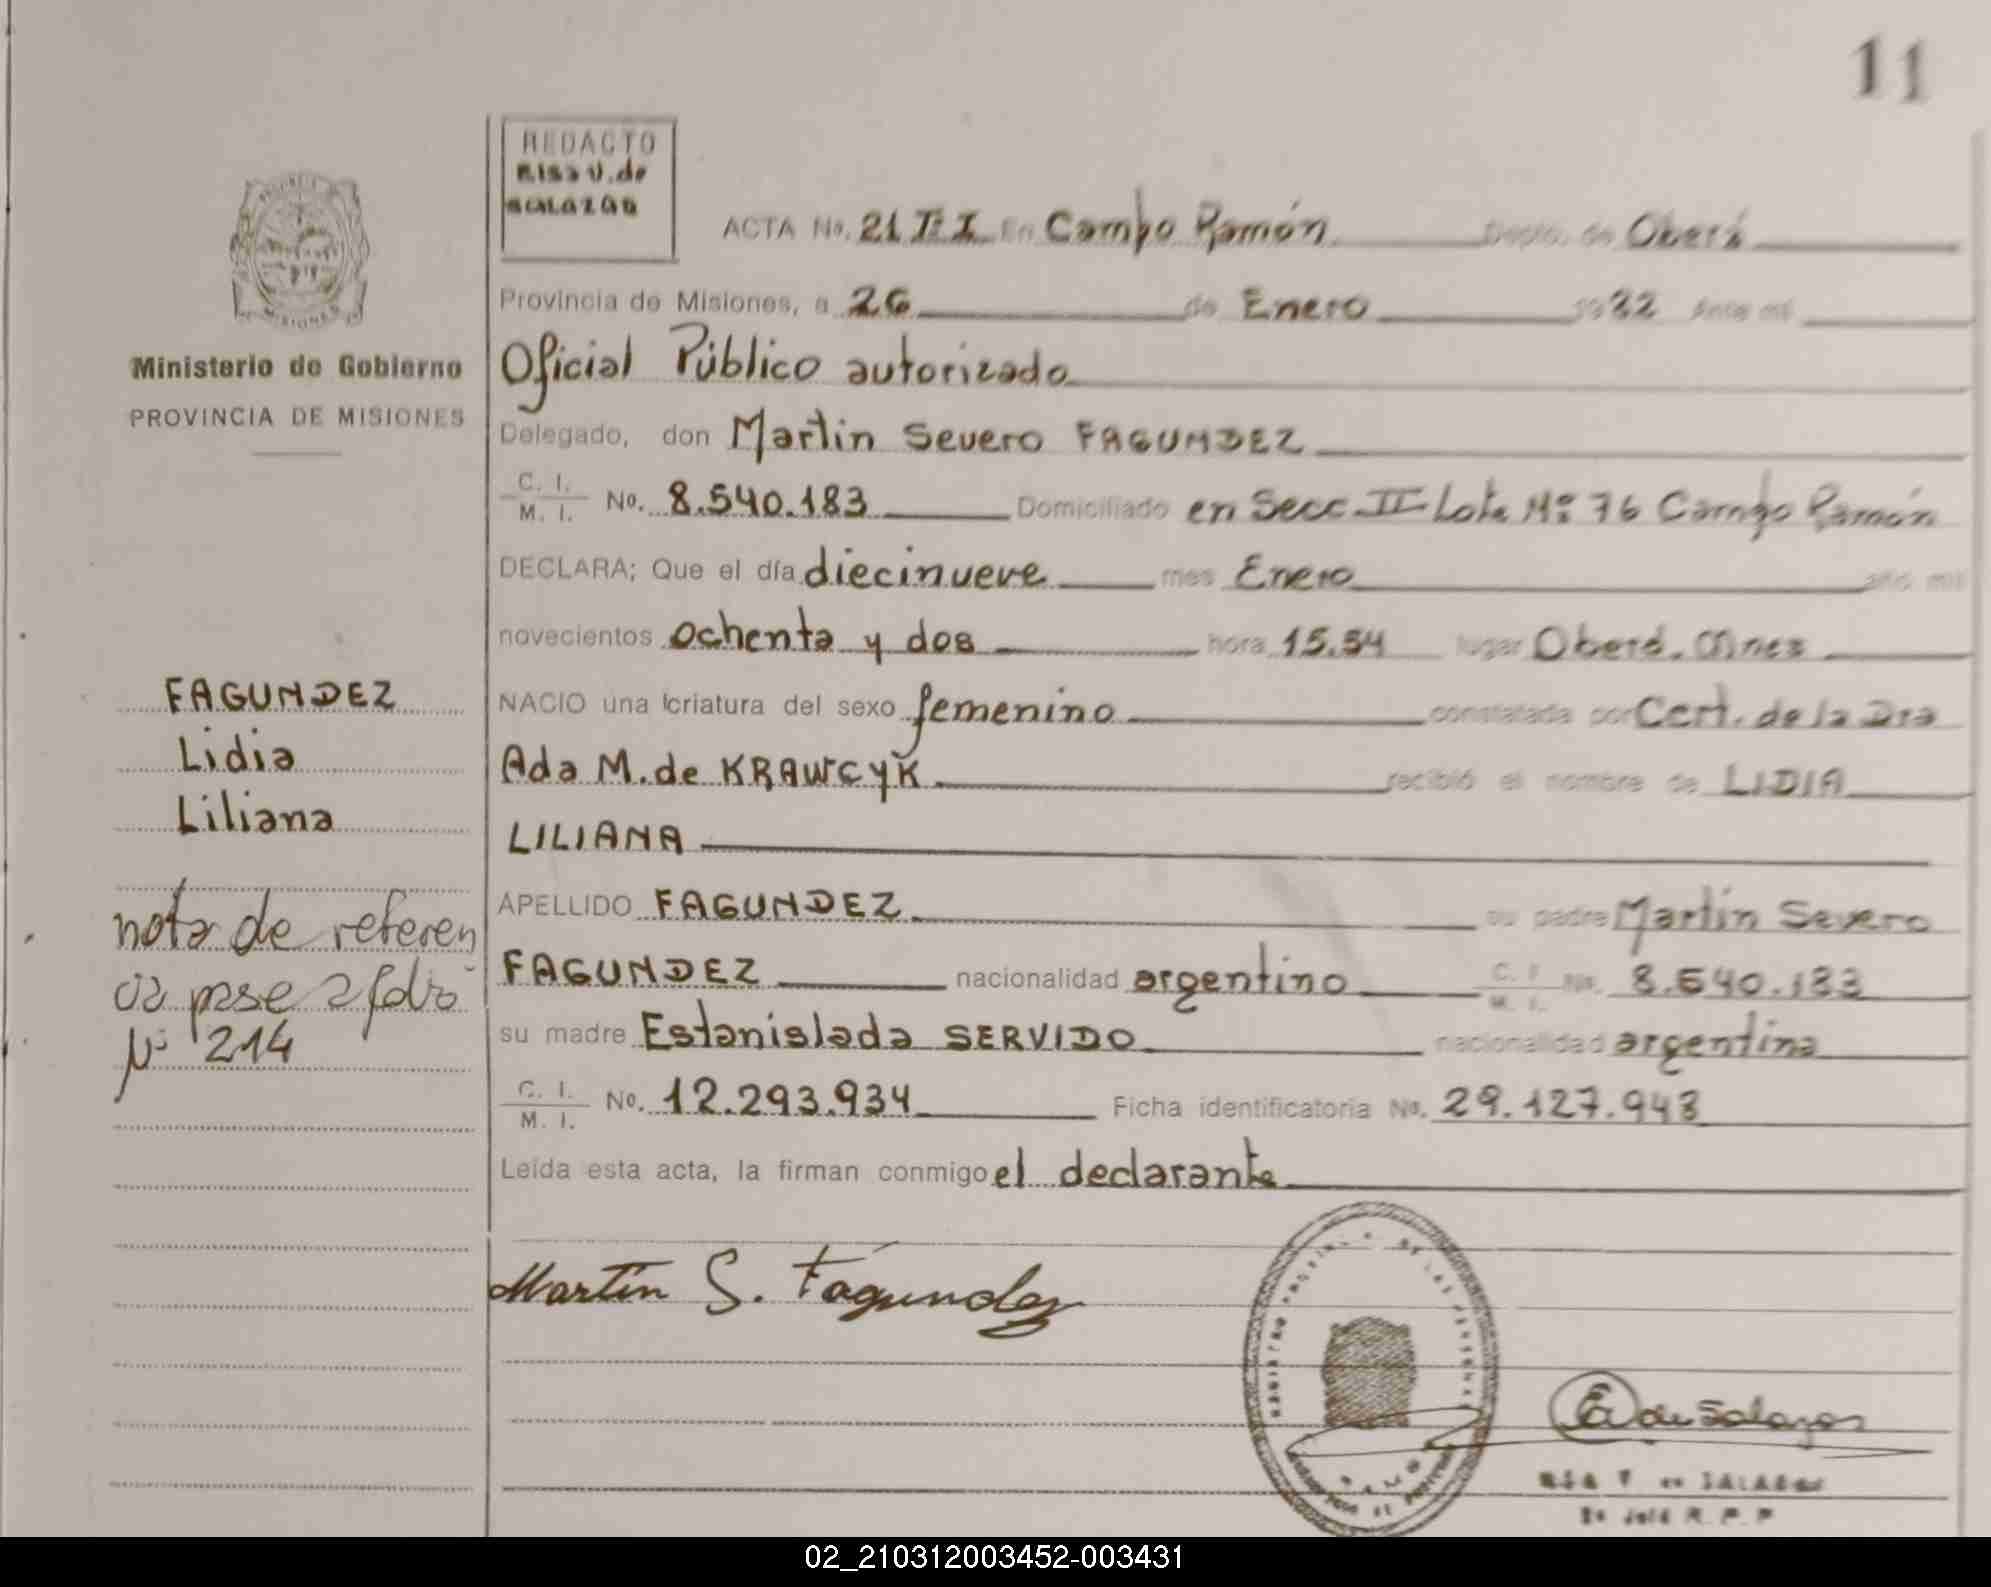 11
REDACTO
ACTA No. 21 T: I En Campo Ramón Depto. de Oberá
Provincia de Misiones, a 26 de Enero 1982 Ante mí
Ministerio de Gobierno
PROVINCIA DE MISIONES
MISIONES
Oficial Público autorizado
Delegado, don Martin Severo FAGUNDEZ
C. I. M. I. No. 8.540.183 Domiciliado en Secc II Lote Nº 76 Campo Ramón
DECLARA; Que el día diecinueve mes Enero año mil
novecientos ochenta y dos hora 15.54 lugar Oberá. Mnes
NACIO una criatura del sexo femenino constatada por Cert. de la Dra
Ada M. de KRAWCYK recibió el nombre de LIDIA
LILIANA
APELLIDO FAGUNDEZ su padre Martín Severo
FAGUNDEZ nacionalidad argentino C. I. M. I. No. 8.540.183
su madre Estanislada SERVIDO nacionalidad argentina
C. I. M. I. No. 12.293.934 Ficha identificatoria No. 29.127.943
Leída esta acta, la firman conmigo el declarante
FAGUNDEZ
Lidia
Liliana
nota de referen
cia pase a folio
Nº 214
Martín S. Fagundez
de Salazar
02_210312003452-003431